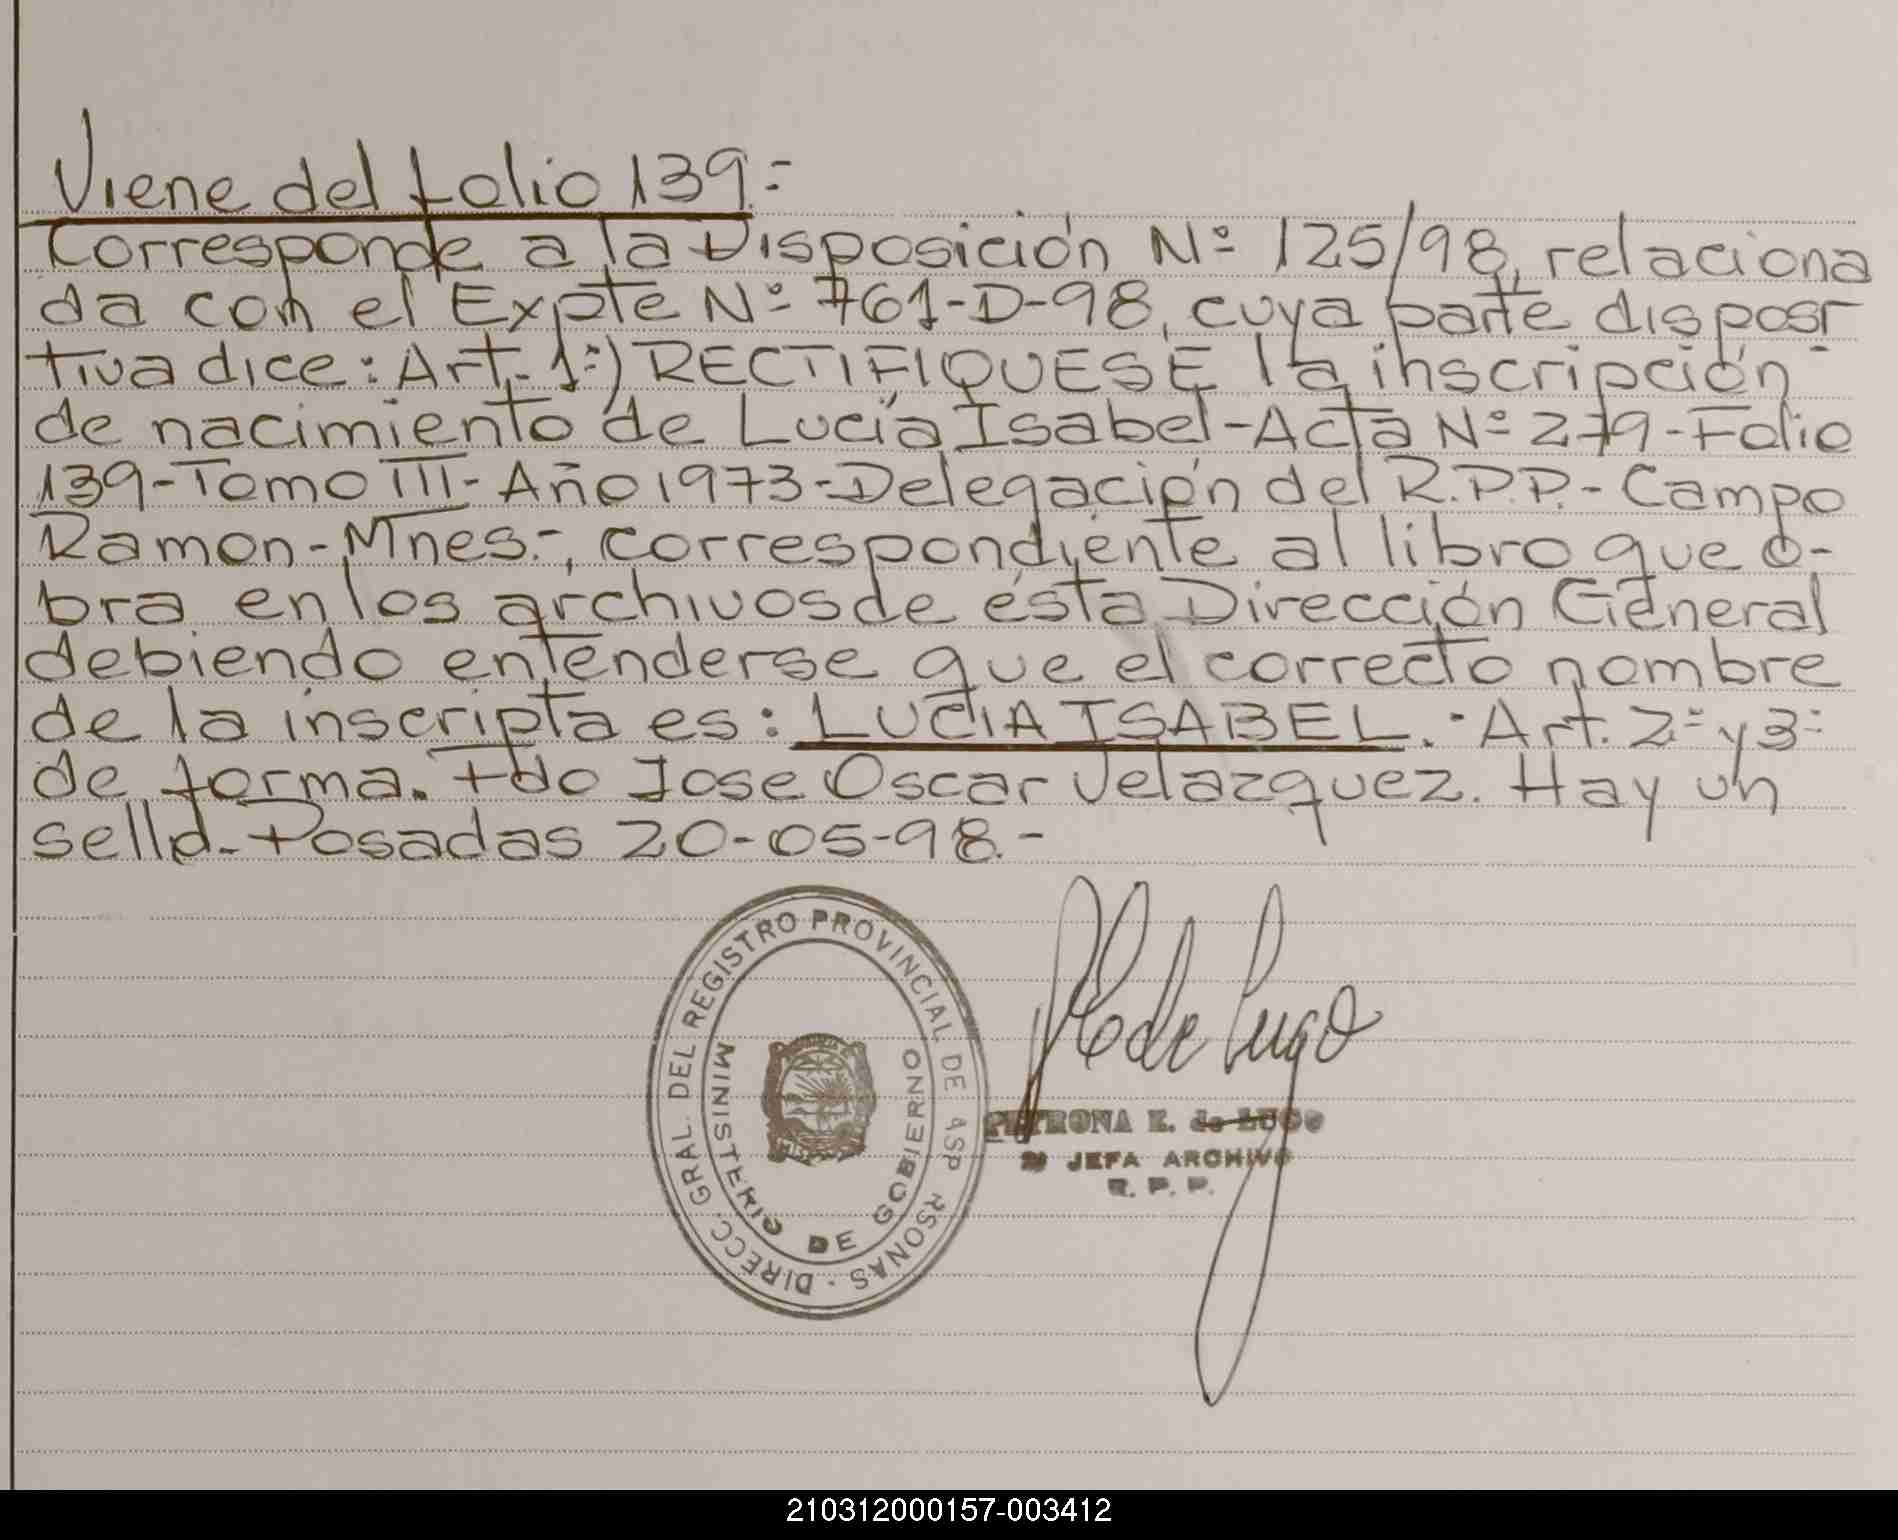 Viene del folio 139.-
Corresponde a la Disposición Nº 125/98, relaciona
da con el Expte Nº 761-D-98, cuya parte disposi
tiva dice: Art. 1º) RECTIFIQUESE la inscripción
de nacimiento de Lucía Isabel-Acta Nº 279-Folio
139-Tomo III-Año 1973-Delegación del R.P.P.-Campo
Ramon-Mnes.-, correspondiente al libro que o-
bra en los archivos de ésta Dirección General
debiendo entenderse que el correcto nombre
de la inscripta es: LUCIA ISABEL.- Art. 2º y 3º
de forma. Fdo Jose Oscar Velazquez. Hay un
sello.- Posadas 20-05-98.-
DIRECC. GRAL. DEL REGISTRO PROVINCIAL DE LAS PERSONAS
MINISTERIO DE GOBIERNO
de Lugo
PETRONA E. de LUGO
JEFA ARCHIVO
R. P. P.
210312000157-003412